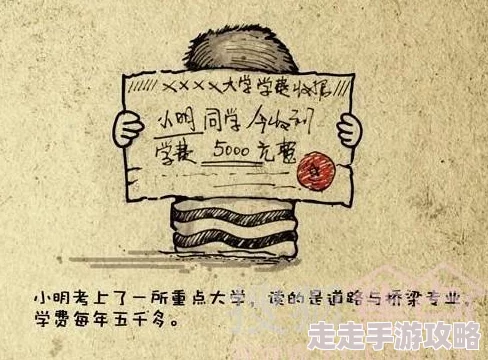 ××××大学学费收据
小明同学今收到
学费 5000 元整
小明考上了一所重点大学，读的是道路与桥梁专业，
学费每年五千多。
走走手游攻略